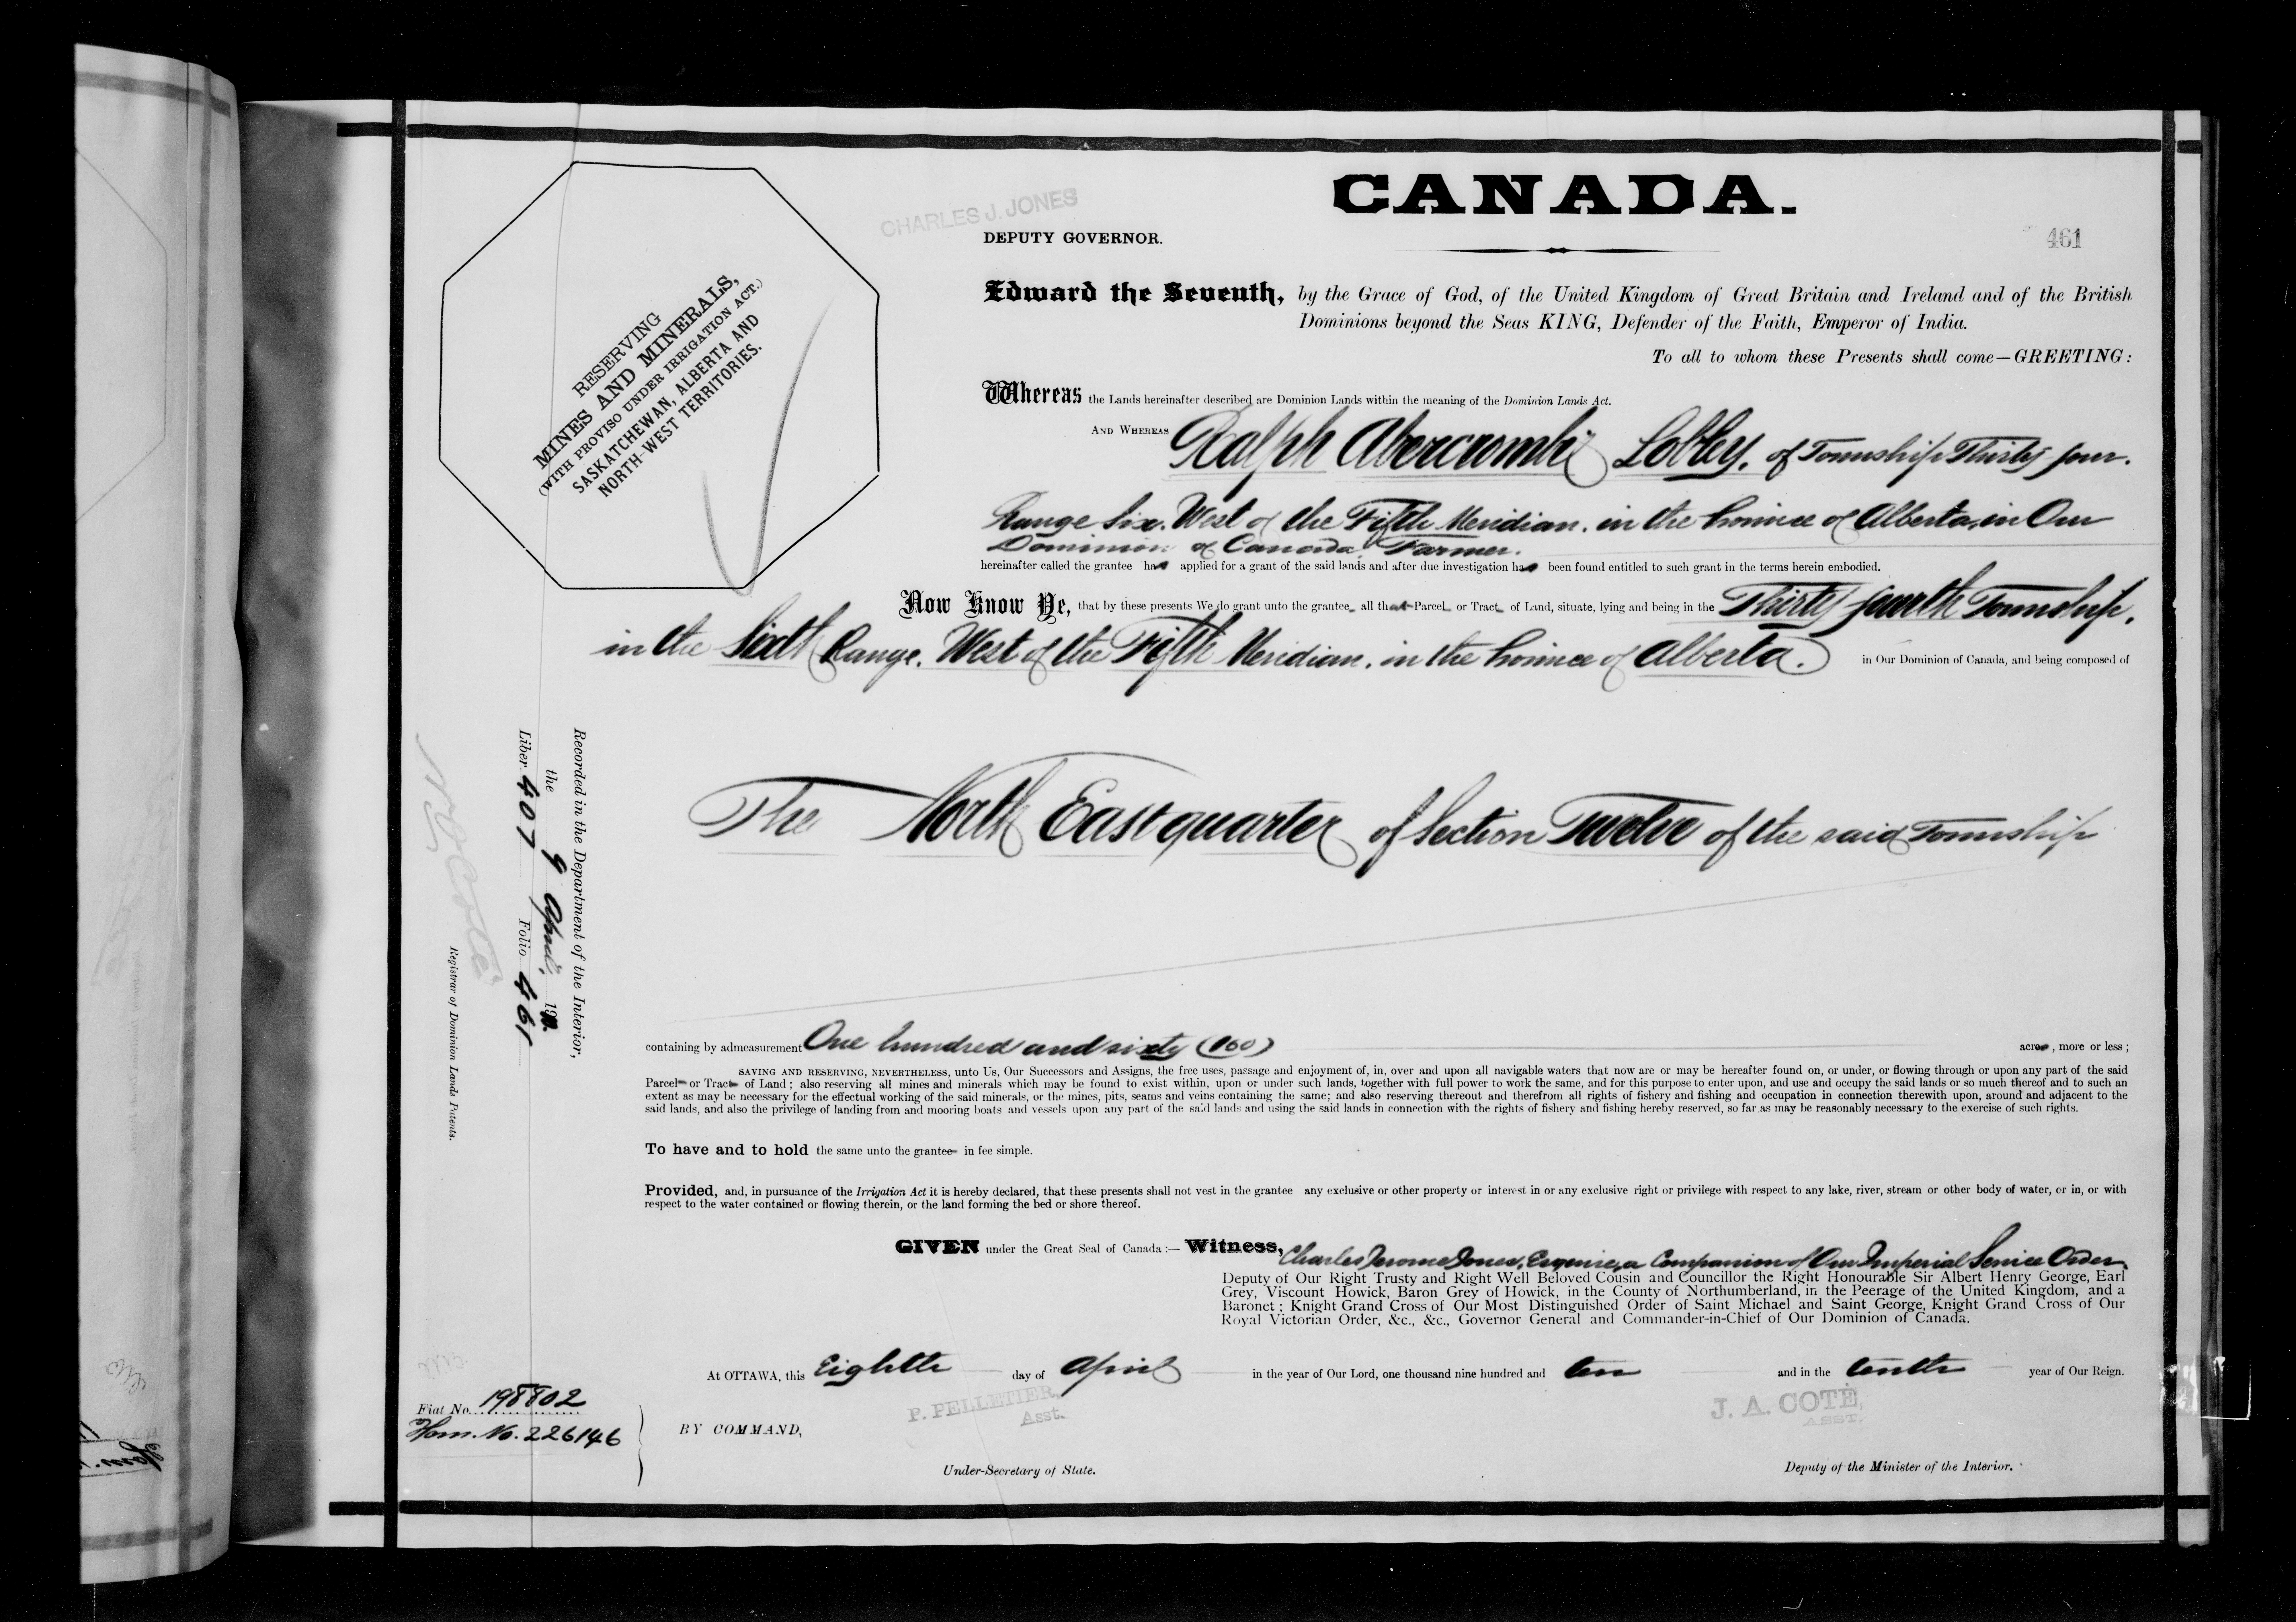 CANADA.
CHARLES J. JONES
DEPUTY GOVERNOR.
461
RESERVING
MINES AND MINERALS,
(WITH PROVISO UNDER IRRIGATION ACT.)
SASKATCHEWAN, ALBERTA AND
NORTH-WEST TERRITORIES.
Edward the Seventh, by the Grace of God, of the United Kingdom of Great Britain and Ireland and of the British
Dominions beyond the Seas KING, Defender of the Faith, Emperor of India.
To all to whom these Presents shall come—GREETING:
Whereas the Lands hereinafter described are Dominion Lands within the meaning of the Dominion Lands Act.
AND WHEREAS Ralph Abercrombie Lobley, of Township Thirty four.
Range Six. West of the Fifth Meridian. in the Province of Alberta, in Our
Dominion of Canada, Farmer.
hereinafter called the grantee has applied for a grant of the said lands and after due investigation has been found entitled to such grant in the terms herein embodied.
Now Know Ye, that by these presents We do grant unto the grantee all that Parcel or Tract of Land, situate, lying and being in the Thirty fourth Township,
in the Sixth Range, West of the Fifth Meridian, in the Province of Alberta. in Our Dominion of Canada, and being composed of
The North East quarter of Section Twelve of the said Township
containing by admeasurement One hundred and sixty (160) acres, more or less;
SAVING AND RESERVING, NEVERTHELESS, unto Us, Our Successors and Assigns, the free uses, passage and enjoyment of, in, over and upon all navigable waters that now are or may be hereafter found on, or under, or flowing through or upon any part of the said
Parcel or Tract of Land; also reserving all mines and minerals which may be found to exist within, upon or under such lands, together with full power to work the same, and for this purpose to enter upon, and use and occupy the said lands or so much thereof and to such an
extent as may be necessary for the effectual working of the said minerals, or the mines, pits, seams and veins containing the same; and also reserving thereout and therefrom all rights of fishery and fishing and occupation in connection therewith upon, around and adjacent to the
said lands, and also the privilege of landing from and mooring boats and vessels upon any part of the said lands and using the said lands in connection with the rights of fishery and fishing hereby reserved, so far as may be reasonably necessary to the exercise of such rights.
To have and to hold the same unto the grantee in fee simple.
Provided, and, in pursuance of the Irrigation Act it is hereby declared, that these presents shall not vest in the grantee any exclusive or other property or interest in or any exclusive right or privilege with respect to any lake, river, stream or other body of water, or in, or with
respect to the water contained or flowing therein, or the land forming the bed or shore thereof.
GIVEN under the Great Seal of Canada:— Witness, Charles Jerome Jones, Esquire, a Companion of Our Imperial Service Order,
Deputy of Our Right Trusty and Right Well Beloved Cousin and Councillor the Right Honourable Sir Albert Henry George, Earl
Grey, Viscount Howick, Baron Grey of Howick, in the County of Northumberland, in the Peerage of the United Kingdom, and a
Baronet; Knight Grand Cross of Our Most Distinguished Order of Saint Michael and Saint George, Knight Grand Cross of Our
Royal Victorian Order, &c., &c., Governor General and Commander-in-Chief of Our Dominion of Canada.
At OTTAWA, this Eighth day of April in the year of Our Lord, one thousand nine hundred and ten and in the tenth year of Our Reign.
P. PELLETIER,
Asst.
J. A. COTÉ,
ASST.
BY COMMAND,
Under-Secretary of State.
Deputy of the Minister of the Interior.
Fiat No. 198802
Hom. No. 226146
Recorded in the Department of the Interior,
the 9 April, 1910.
Liber 407 Folio 461
N. O. Coté
Registrar of Dominion Lands Patents.